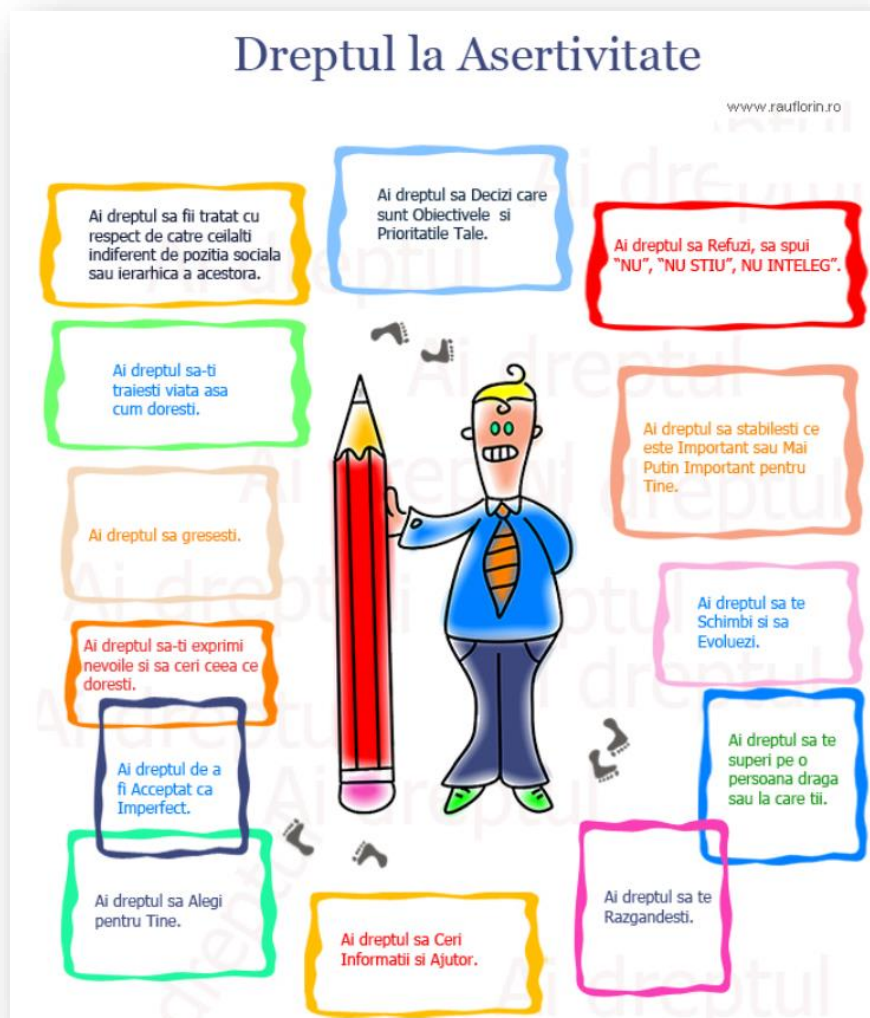 Dreptul la Asertivitate
www.rauflorin.ro
Ai dreptul sa fii tratat cu
respect de catre ceilalti
indiferent de pozitia sociala
sau ierarhica a acestora.
Ai dreptul sa Decizi care
sunt Obiectivele si
Prioritatile Tale.
Ai dreptul sa Refuzi, sa spui
“NU”, “NU STIU”, NU INTELEG”.
Ai dreptul sa-ti
traiesti viata asa
cum doresti.
Ai dreptul sa stabilesti ce
este Important sau Mai
Putin Important pentru
Tine.
Ai dreptul sa gresesti.
Ai dreptul sa te
Schimbi si sa
Evoluezi.
Ai dreptul sa-ti exprimi
nevoile si sa ceri ceea ce
doresti.
Ai dreptul sa te
superi pe o
persoana draga
sau la care tii.
Ai dreptul de a
fi Acceptat ca
Imperfect.
Ai dreptul sa Alegi
pentru Tine.
Ai dreptul sa te
Razgandesti.
Ai dreptul sa Ceri
Informatii si Ajutor.